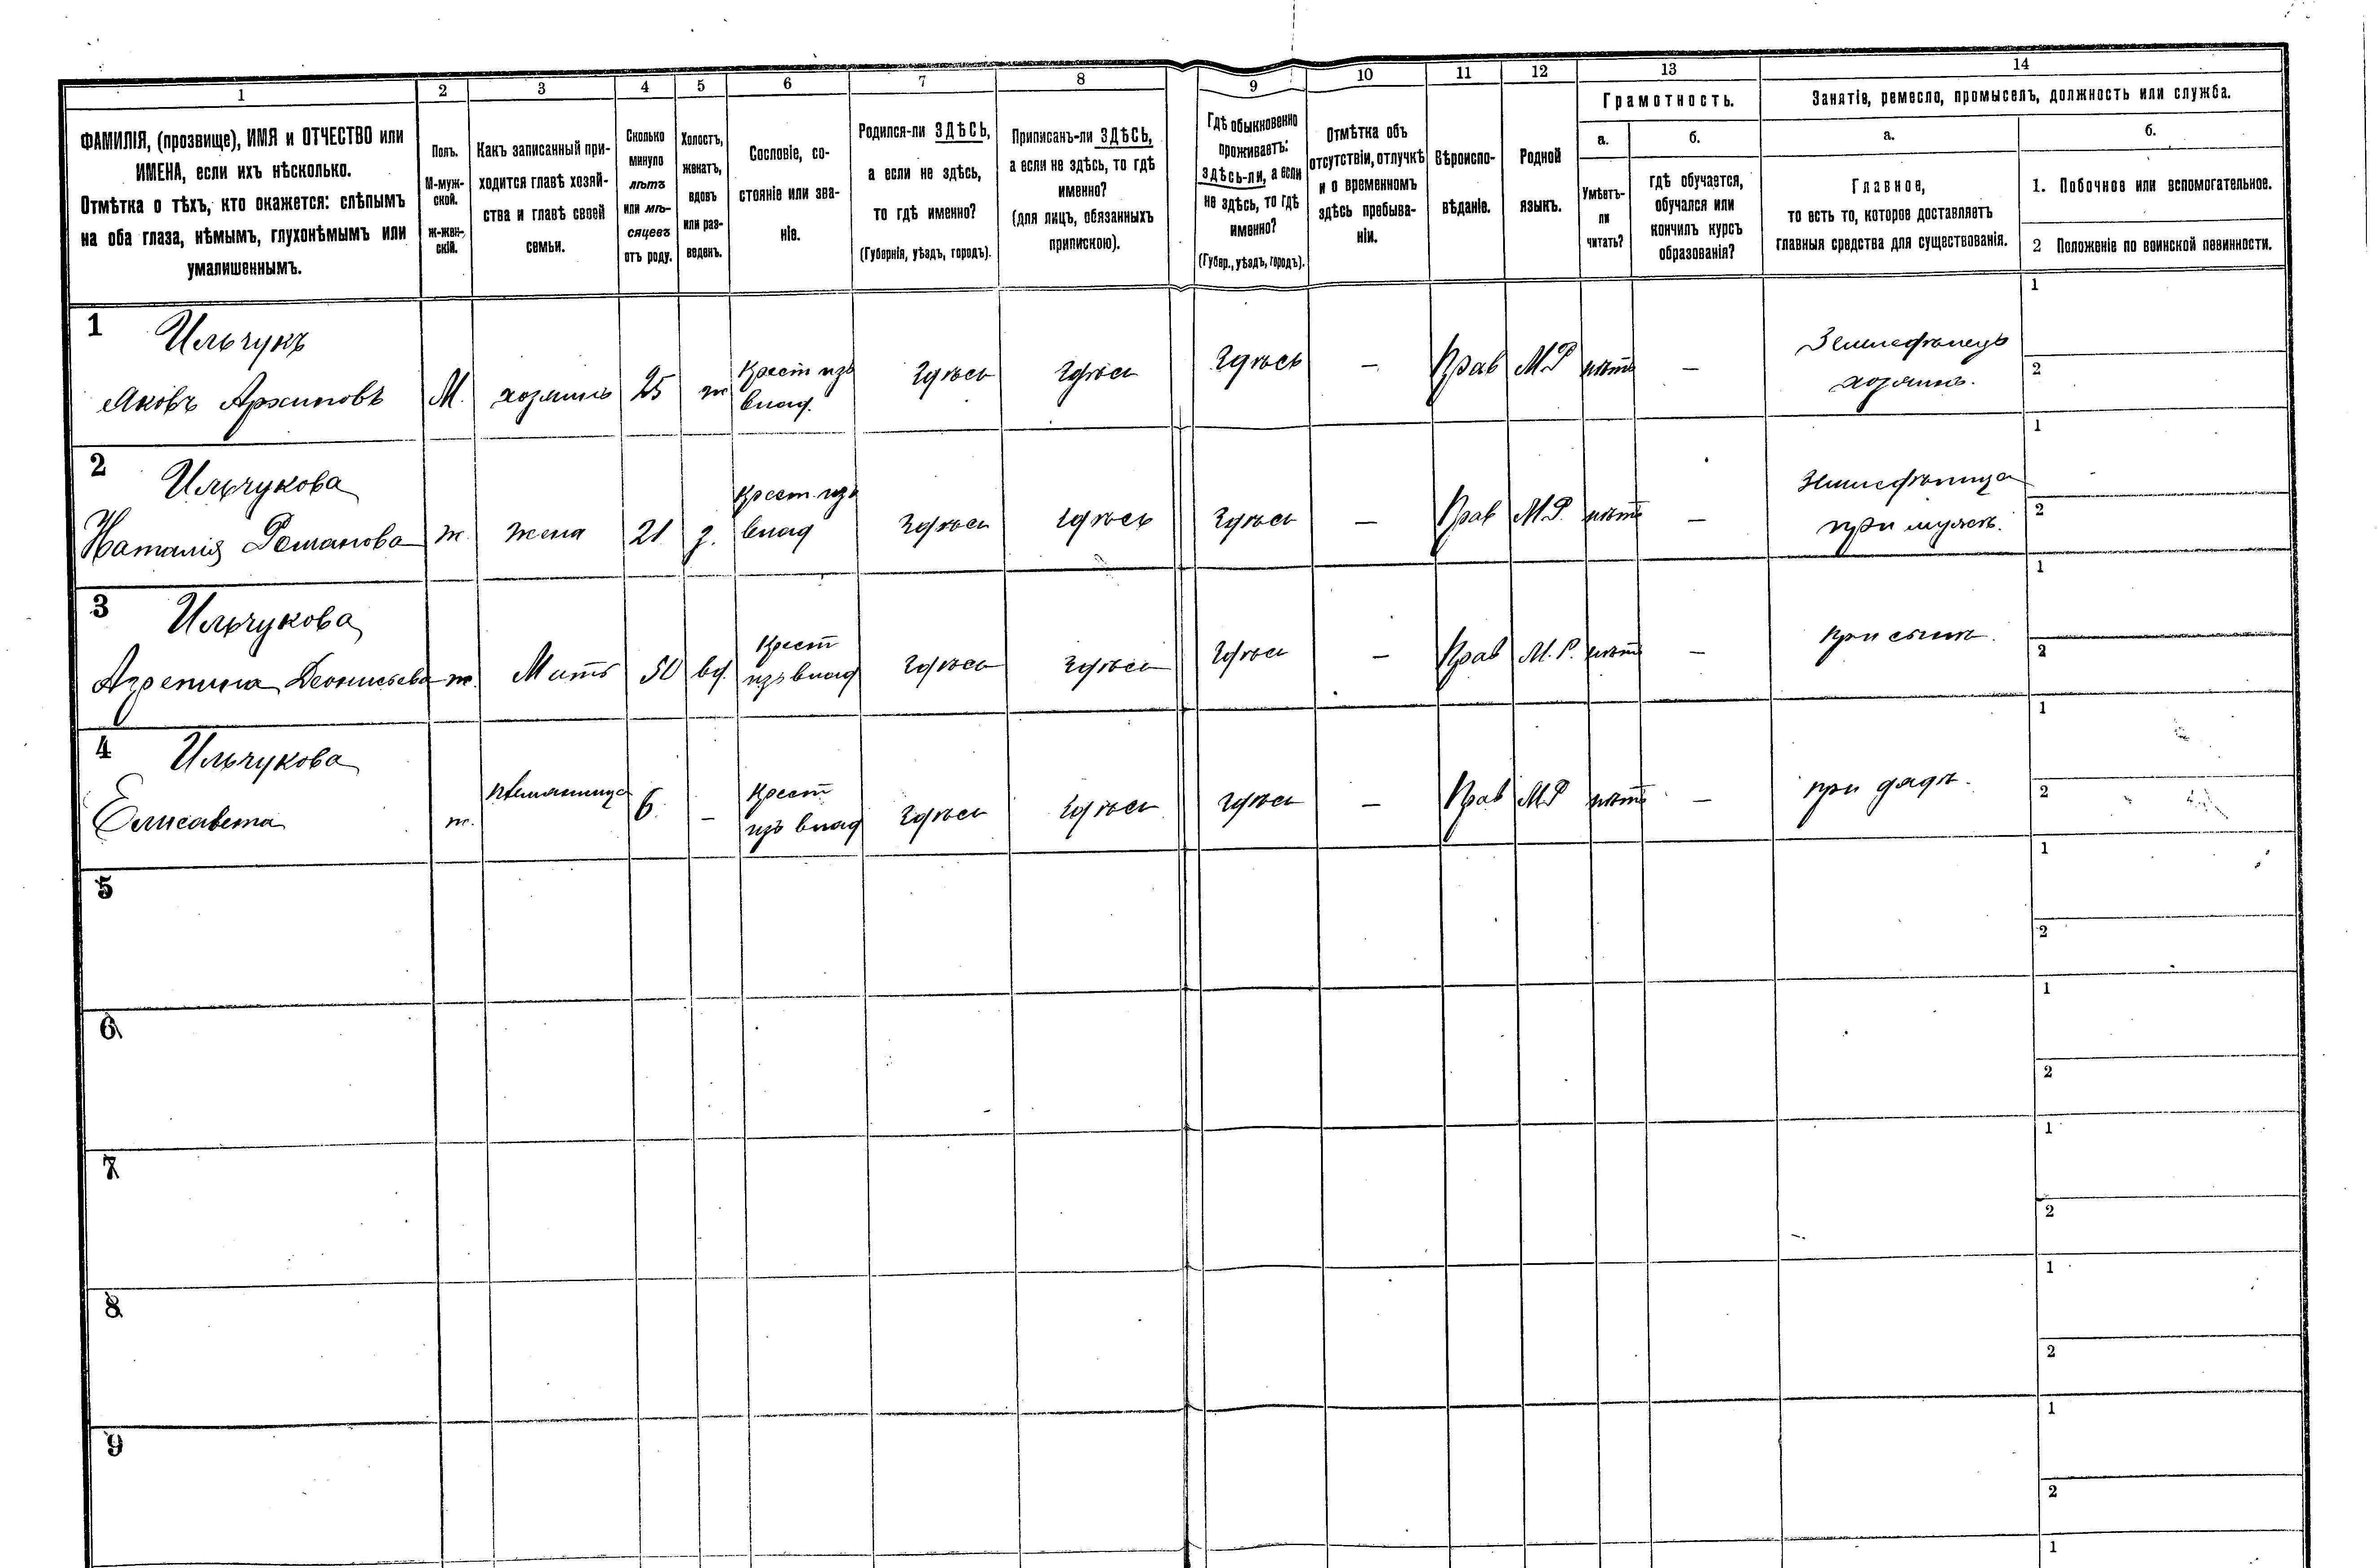 1 2 3 4 5 6 7 8 9 10 11 12 13 14
ФАМИЛІЯ, (прозвище), ИМЯ и ОТЧЕСТВО или
ИМЕНА, если ихъ нѣсколько.
Отмѣтка о тѣхъ, кто окажется: слѣпымъ
на оба глаза, нѣмымъ, глухонѣмымъ или
умалишеннымъ.
Полъ.
М-муж-
ской.
ж-жен-
скій.
Какъ записанный при-
ходится главѣ хозяй-
ства и главѣ своей
семьи.
Сколько
минуло
лѣтъ
или мѣ-
сяцевъ
отъ роду.
Холостъ,
женатъ,
вдовъ
или раз-
веденъ.
Сословіе, со-
стояніе или зва-
ніе.
Родился-ли ЗДѢСЬ,
а если не здѣсь,
то гдѣ именно?
(Губернія, уѣздъ, городъ).
Приписанъ-ли ЗДѢСЬ,
а если не здѣсь, то гдѣ
именно?
(для лицъ, обязанныхъ
припискою).
Гдѣ обыкновенно
проживаетъ:
здѣсь-ли, а если
не здѣсь, то гдѣ
именно?
(Губер., уѣздъ, городъ).
Отмѣтка объ
отсутствіи, отлучкѣ
и о временномъ
здѣсь пребыва-
ніи.
Вѣроиспо-
вѣданіе.
Родной
языкъ.
Грамотность.
а.
Умѣетъ-
ли
читать?
б.
гдѣ обучается,
обучался или
кончилъ курсъ
образованія?
Занятіе, ремесло, промыселъ, должность или служба.
а.
Главное,
то есть то, которое доставляетъ
главныя средства для существованія.
б.
1. Побочное или вспомогательное.
2 Положеніе по воинской повинности.
1 Ильчукъ
Яковъ Архиповъ
М.
хозяинъ
25
ж
Крест изъ
влад.
Здѣсь
Здѣсь
Здѣсь
—
Прав
М.Р
нѣтъ
—
Земледѣлецъ
хозяинъ.
1
2
2 Ильчукова
Наталія Романова
ж.
жена
21
з.
Крест. изъ
влад
Здѣсь
Здѣсь
Здѣсь
—
Прав
М.Р.
нѣтъ
—
Земледѣлица
при мужѣ.
1
2
3 Ильчукова
Агрепина Деонисьева
ж.
Мать
50
вд.
Крест
изъ влад
Здѣсь
Здѣсь
Здѣсь
—
Прав
М.Р.
нѣтъ
—
при сынѣ.
1
2
4 Ильчукова
Елисавета
ж.
племянница
6
—
Крест
изъ влад
Здѣсь
Здѣсь
Здѣсь
—
Прав
М.Р
нѣтъ
—
при дядѣ.
1
2
5
1
2
6
1
2
7
1
2
8
1
2
9
1
2
1